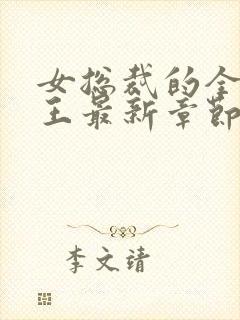 女总裁的全
王最新章节
李文靖